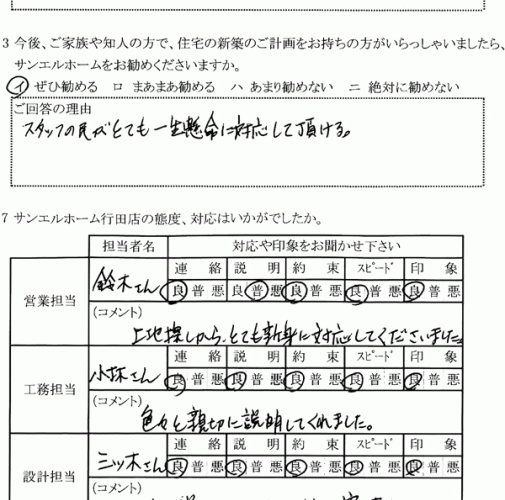 3 今後、ご家族や知人の方で、住宅の新築のご計画をお持ちの方がいらっしゃいましたら、
サンエルホームをお勧めくださいますか。
イ ぜひ勧める ロ まあまあ勧める ハ あまり勧めない ニ 絶対に勧めない
ご回答の理由
スタッフの民がとても一生懸命に対応して頂ける。
7 サンエルホーム行田店の態度、対応はいかがでしたか。
担当者名 対応や印象をお聞かせ下さい
営業担当 鈴木さん 連絡 説明 約束 スピード 印象
良 普 悪 良 普 悪 良 普 悪 良 普 悪 良 普 悪
(コメント)
土地探しから、とても親身に対応してくださいました
工務担当 小林さん 連絡 説明 約束 スピード 印象
良 普 悪 良 普 悪 良 普 悪 良 普 悪 良 普 悪
(コメント)
色々と親切に説明してくれました。
設計担当 三ッ木さん 連絡 説明 約束 スピード 印象
良 普 悪 良 普 悪 良 普 悪 良 普 悪 良 普 悪
(コメント)